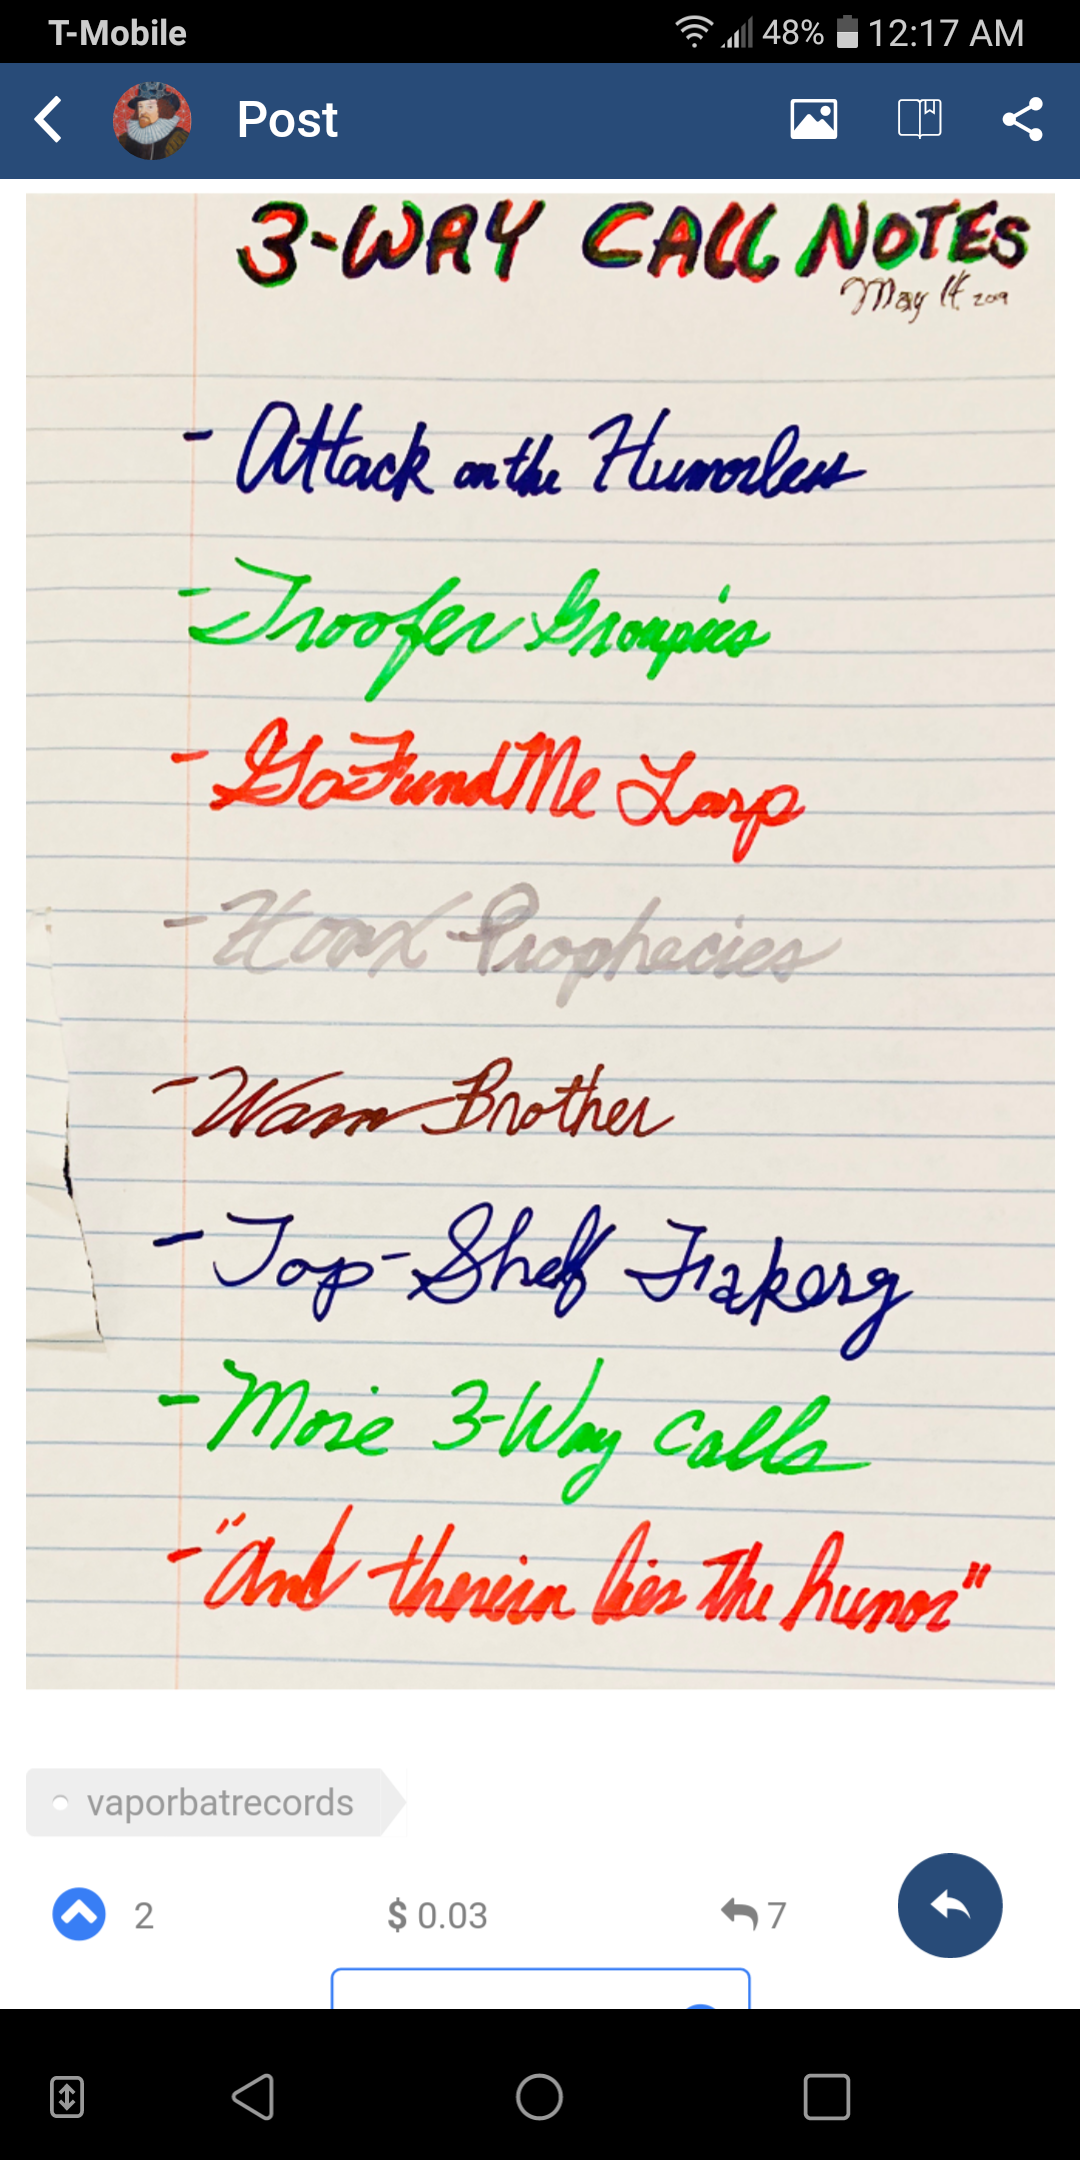 T-Mobile 48% 12:17 AM
Post
3-WAY CALL NOTES
May 14 2019
- Attack on the Humorless
- Troofer Groupies
- GoFundMe Larp
- Hoax Prophecies
- Warm Brother
- Top-Shelf Fakery
- More 3-Way Calls
- "And therein lies the humor"
vaporbatrecords
2 $ 0.03 7